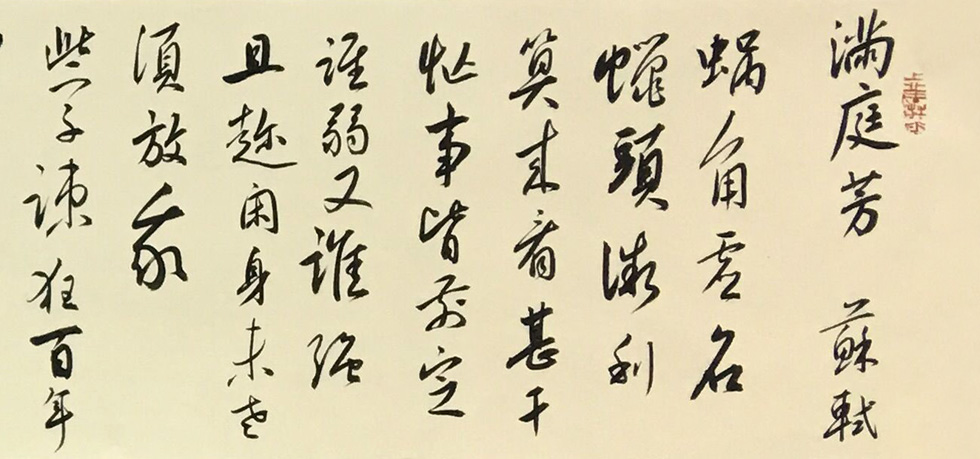 滿庭芳 蘇軾
蝸角虛名
蠅頭微利
算來着甚干
忙事皆前定
誰弱又誰強
且趁閑身未老
須放我
些子疎狂百年